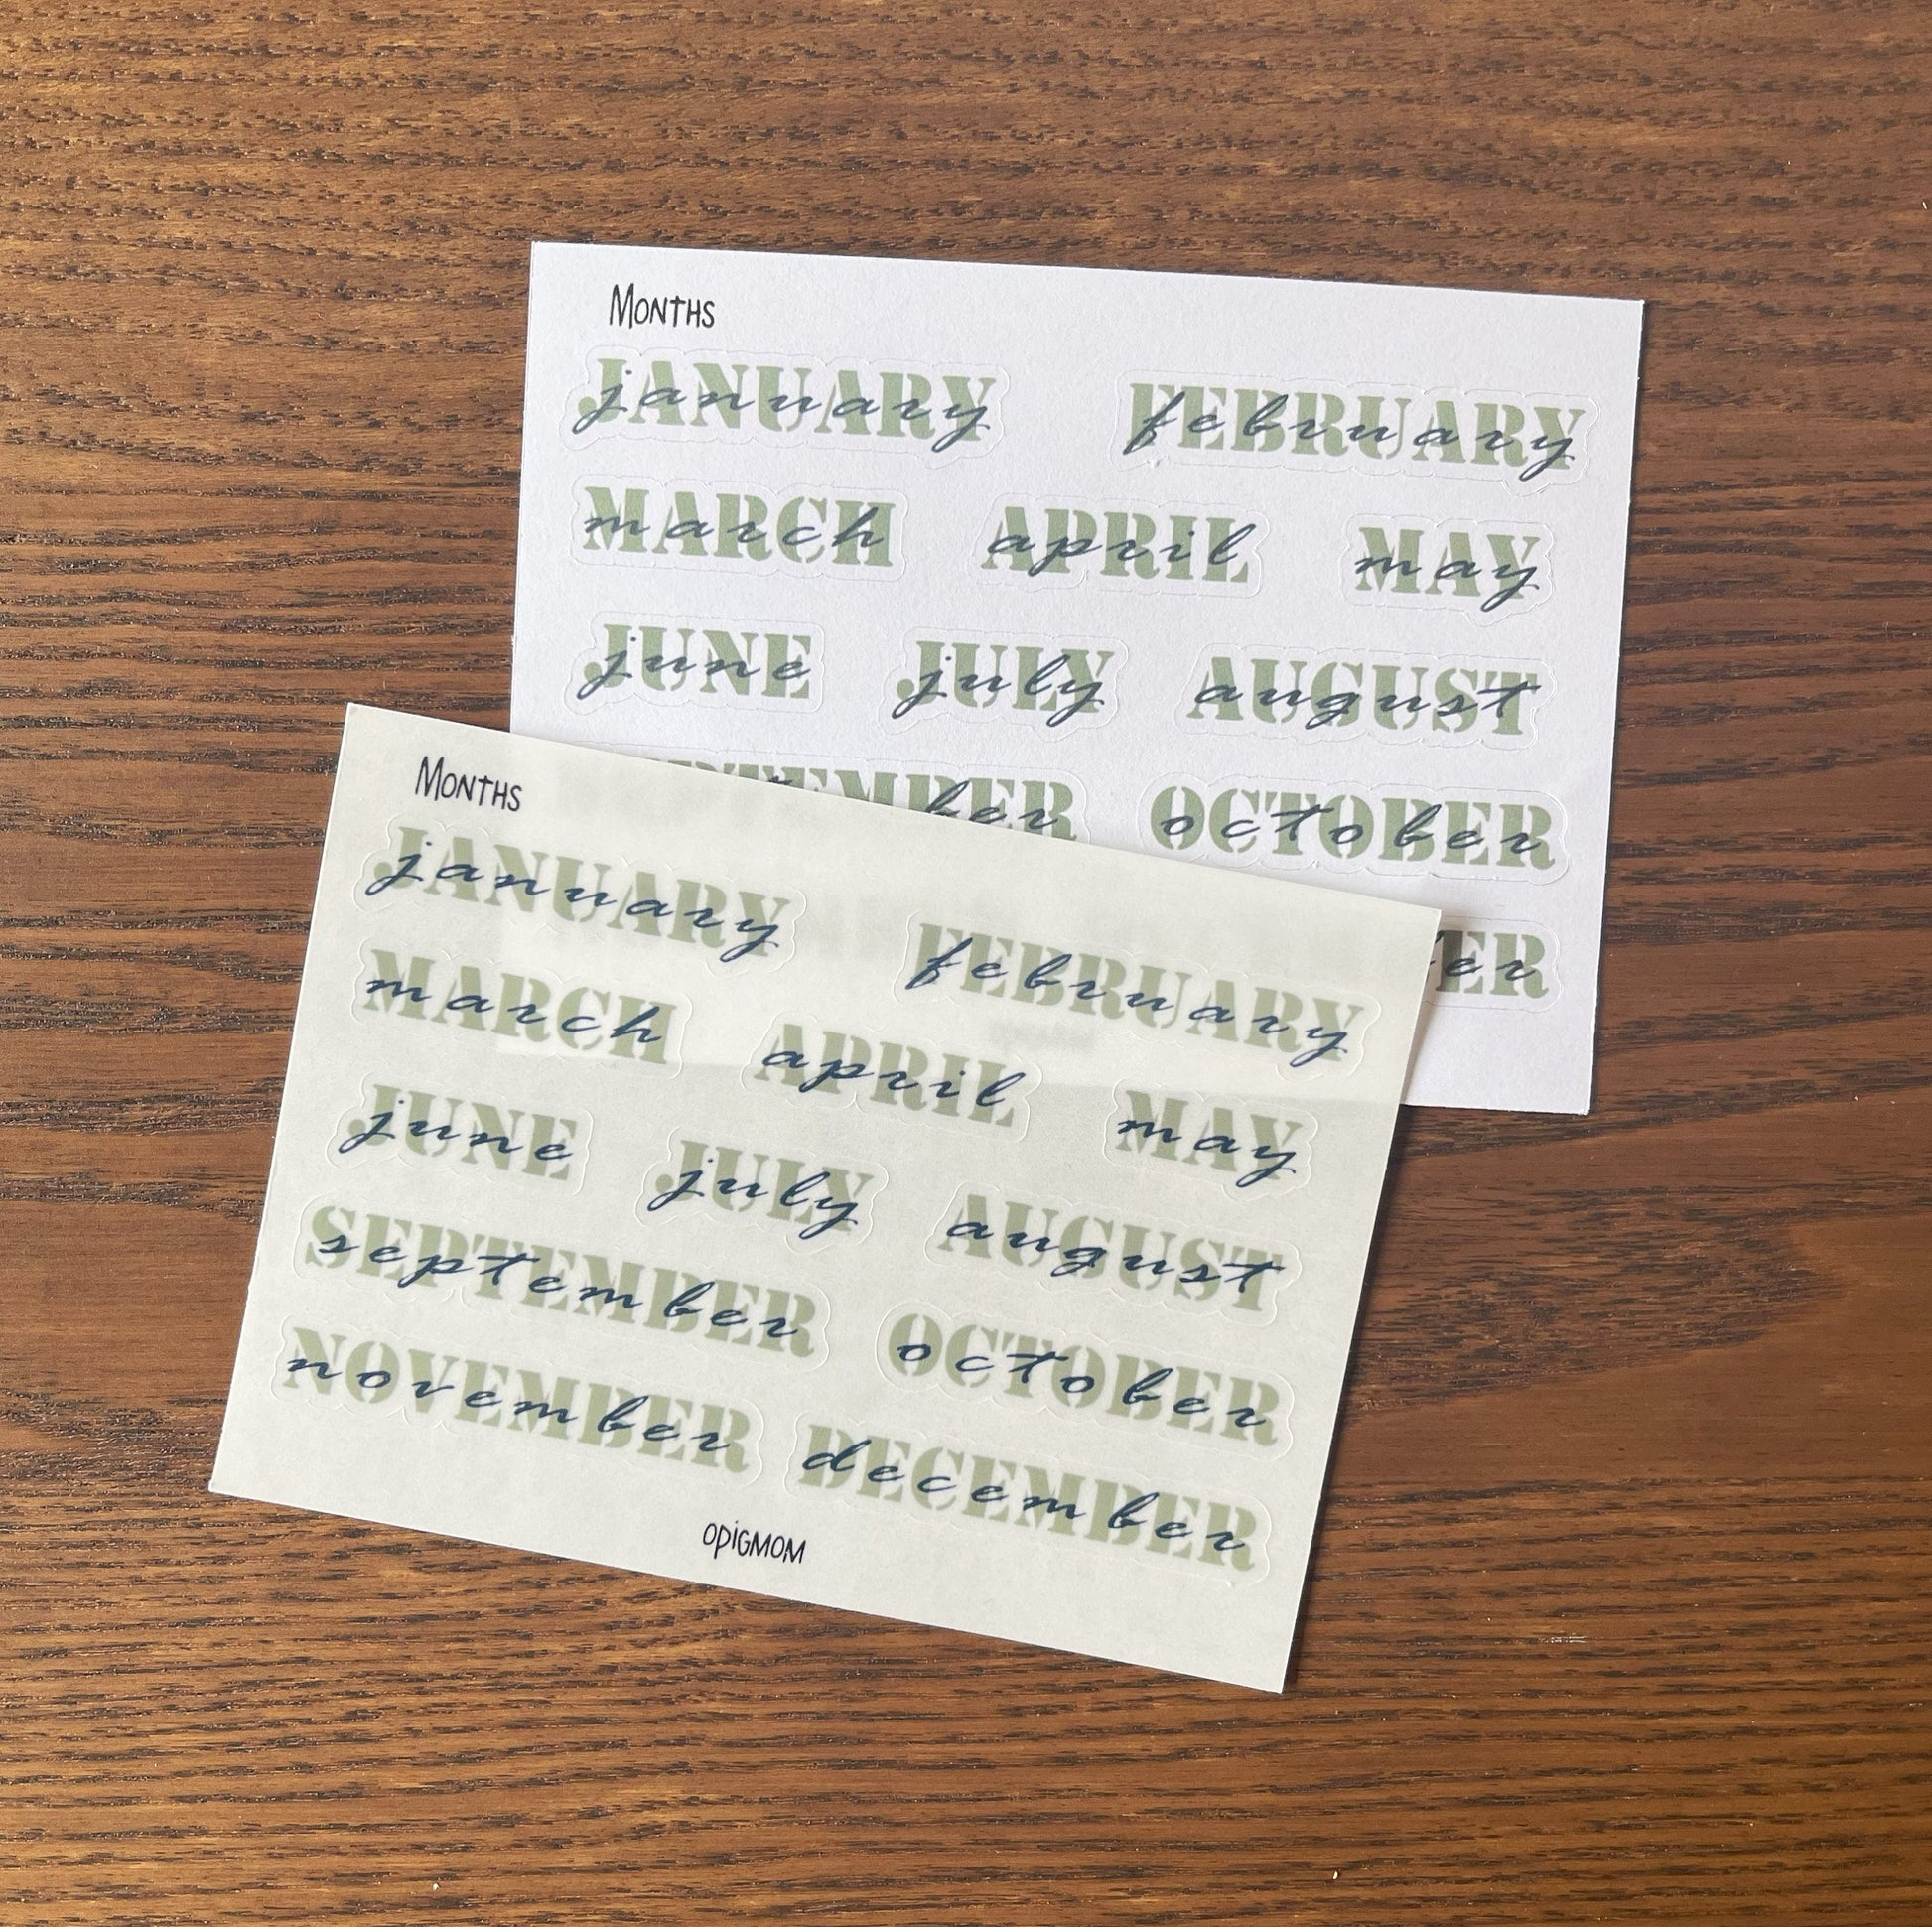 Months
JANUARY january FEBRUARY february
MARCH march APRIL april MAY may
JUNE june JULY july AUGUST august
OCTOBER october
Months
JANUARY january FEBRUARY february
MARCH march APRIL april MAY may
JUNE june JULY july AUGUST august
SEPTEMBER september OCTOBER october
NOVEMBER november DECEMBER december
OPIGMOM